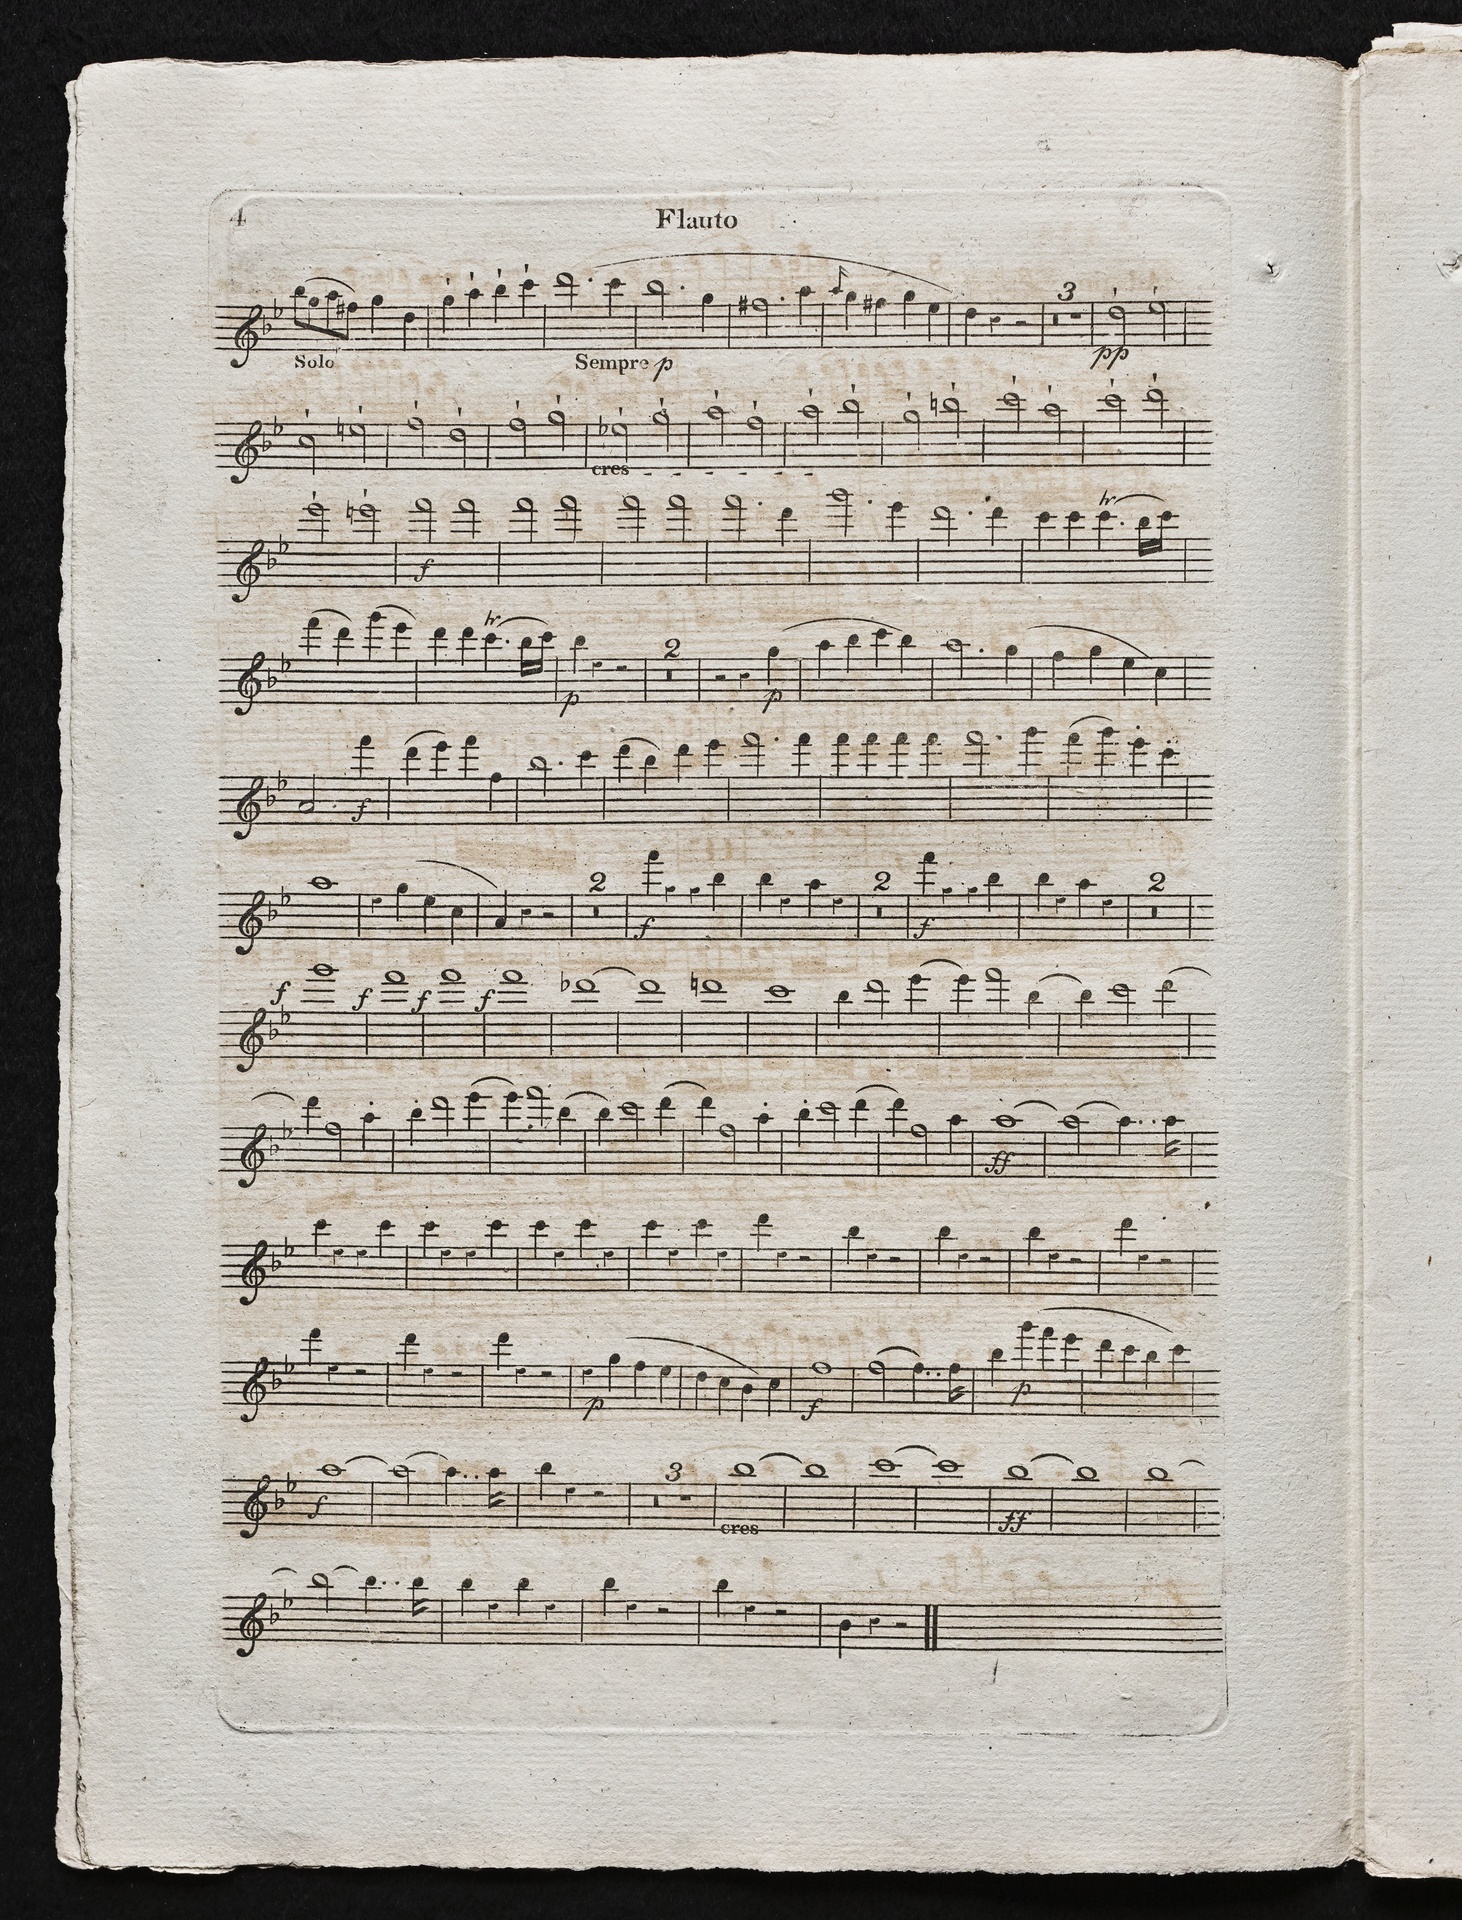 4
Flauto
3
Solo
Sempre p
pp
cres
tr
f
tr
2
p
p
f
2
2
2
f
f
f
f
f
f
ff
p
f
p
3
f
cres
ff